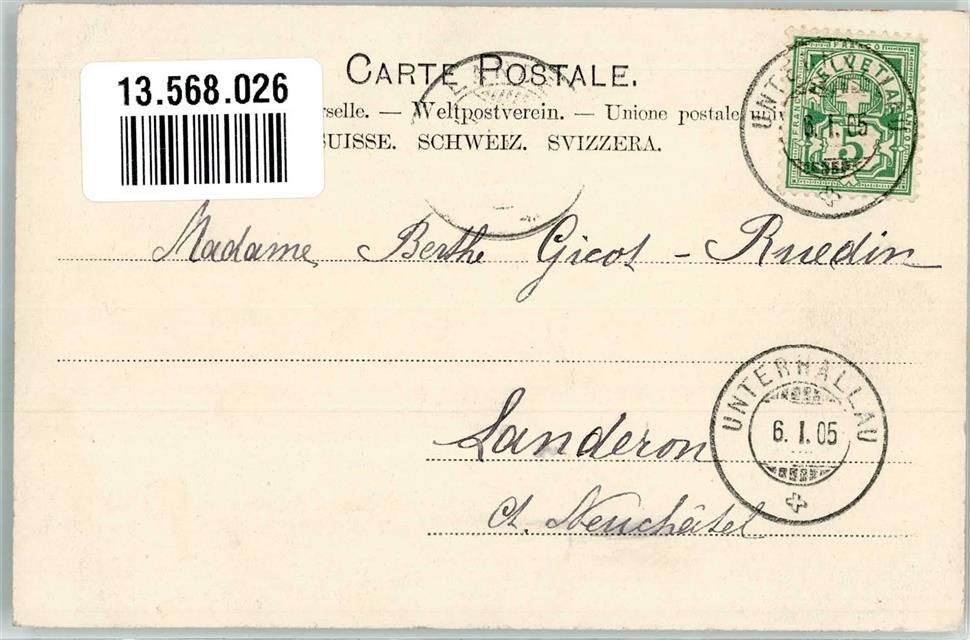 13.568.026
CARTE POSTALE.
rselle. — Weltpostverein. — Unione postale
SUISSE. SCHWEIZ. SVIZZERA.
FRANCO
HELVETIA
5
6. I. 05
Madame Berthe Gicot - Ruedin
Landeron
Ct. Neuchâtel
UNTERHALLAU
6. I. 05